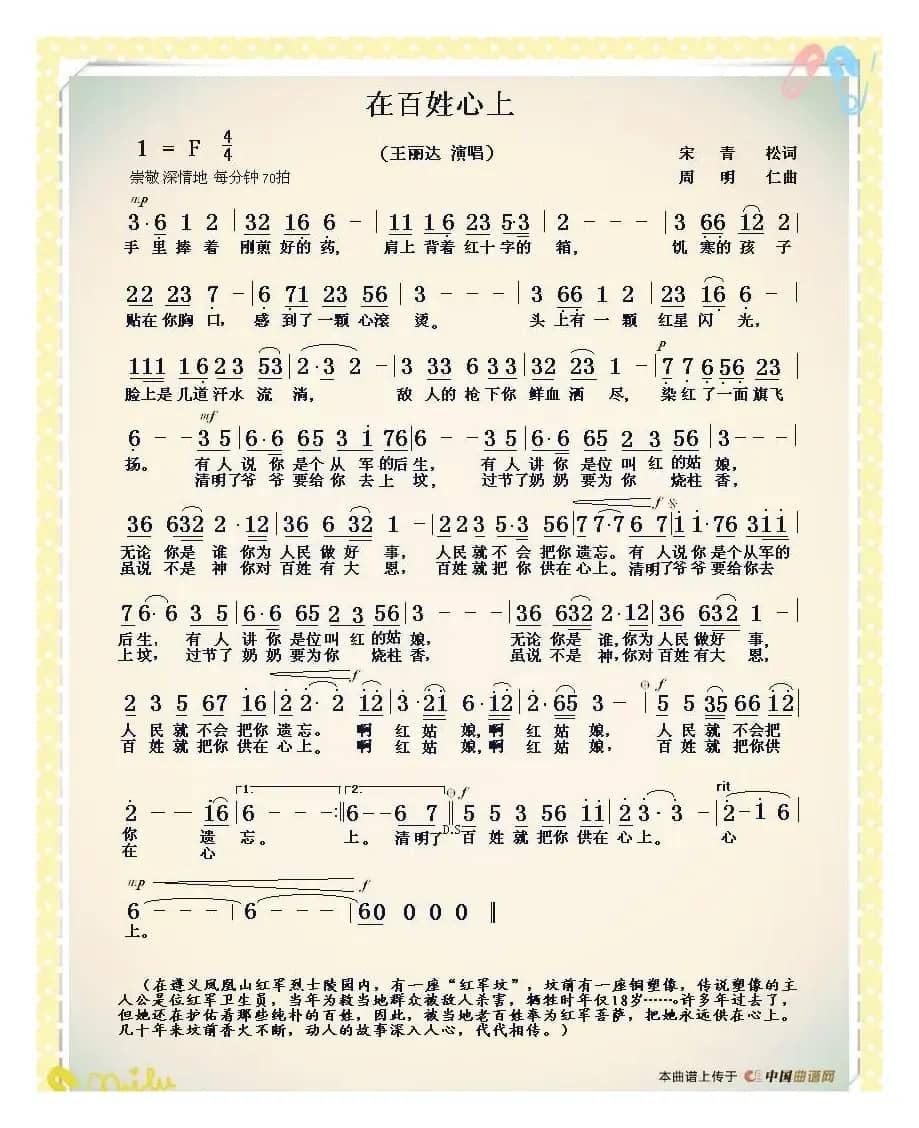 在百姓心上
1 = F 4/4
（王丽达 演唱）
宋 青 松词
崇敬 深情地 每分钟 70拍
周 明 仁曲
mp
3·6 1 2 | 32 16 6 - | 11 16 23 5·3 | 2 - - - | 3 66 12 2 |
手里捧着 刚煎好的药， 肩上背着红十字的箱， 饥寒的孩子
22 23 7 - | 6 71 23 56 | 3 - - - | 3 66 1 2 | 23 16 6 - |
贴在你胸口， 感到了一颗心滚烫。 头上有一颗 红星闪光，
p
111 16 23 53 | 2·3 2 - | 3 33 6 33 | 32 23 1 - | 7 76 56 23 |
脸上是几道汗水流淌， 敌人的枪下你鲜血洒尽， 染红了一面旗飞
mf
6 - - 35 | 6·6 65 3 1 76 | 6 - - 35 | 6·6 65 2 3 56 | 3 - - - |
扬。 有人说你是个从军的后生， 有人讲你是位叫红的姑娘，
清明了爷爷要给你去上坟， 过节了奶奶要为你 烧柱香，
f
36 632 2·12 | 36 6 32 1 - | 2 23 5·3 56 | 7 7·7 6 7 | 1 1·76 311 |
无论你是谁你为人民做好事， 人民就不会把你遗忘。有人说你是个从军的
虽说不是神你对百姓有大恩， 百姓就把你供在心上。清明了爷爷要给你去
7 6·6 3 5 | 6·6 65 2 3 56 | 3 - - - | 36 632 2·12 | 36 632 1 - |
后生， 有人讲你是位叫红的姑娘， 无论你是谁，你为人民做好事，
上坟， 过节了奶奶要为你 烧柱香， 虽说不是神，你对百姓有大恩，
f f
2 3 5 67 16 | 2 2·2 12 | 3·21 6·12 | 2·65 3 - | 5 5 35 66 12 |
人民就不会把你遗忘。啊红姑娘，啊红姑娘， 人民就不会把
百姓就把你供在心上。啊红姑娘，啊红姑娘， 百姓就把你供
1. 2. f rit
2 - - 16 | 6 - - - :‖ 6 - - 6 7 | 5 5 3 56 11 | 2 3·3 - | 2 - 1 6 |
D.S
你 遗忘。 上。 清明了百姓就把你供在心上。 心
在 心
mp f
6 - - - | 6 - - - | 60 0 0 0 ‖
上。
（在遵义凤凰山红军烈士陵园内，有一座“红军坟”，坟前有一座铜塑像，传说塑像的主
人公是位红军卫生员，当年为救当地群众被敌人杀害，牺牲时年仅18岁……许多年过去了，
但她还在护佑着那些纯朴的百姓，因此，被当地老百姓奉为红军菩萨，把她永远供在心上。
几十年来坟前香火不断，动人的故事深入人心，代代相传。）
milu
本曲谱上传于 中国曲谱网